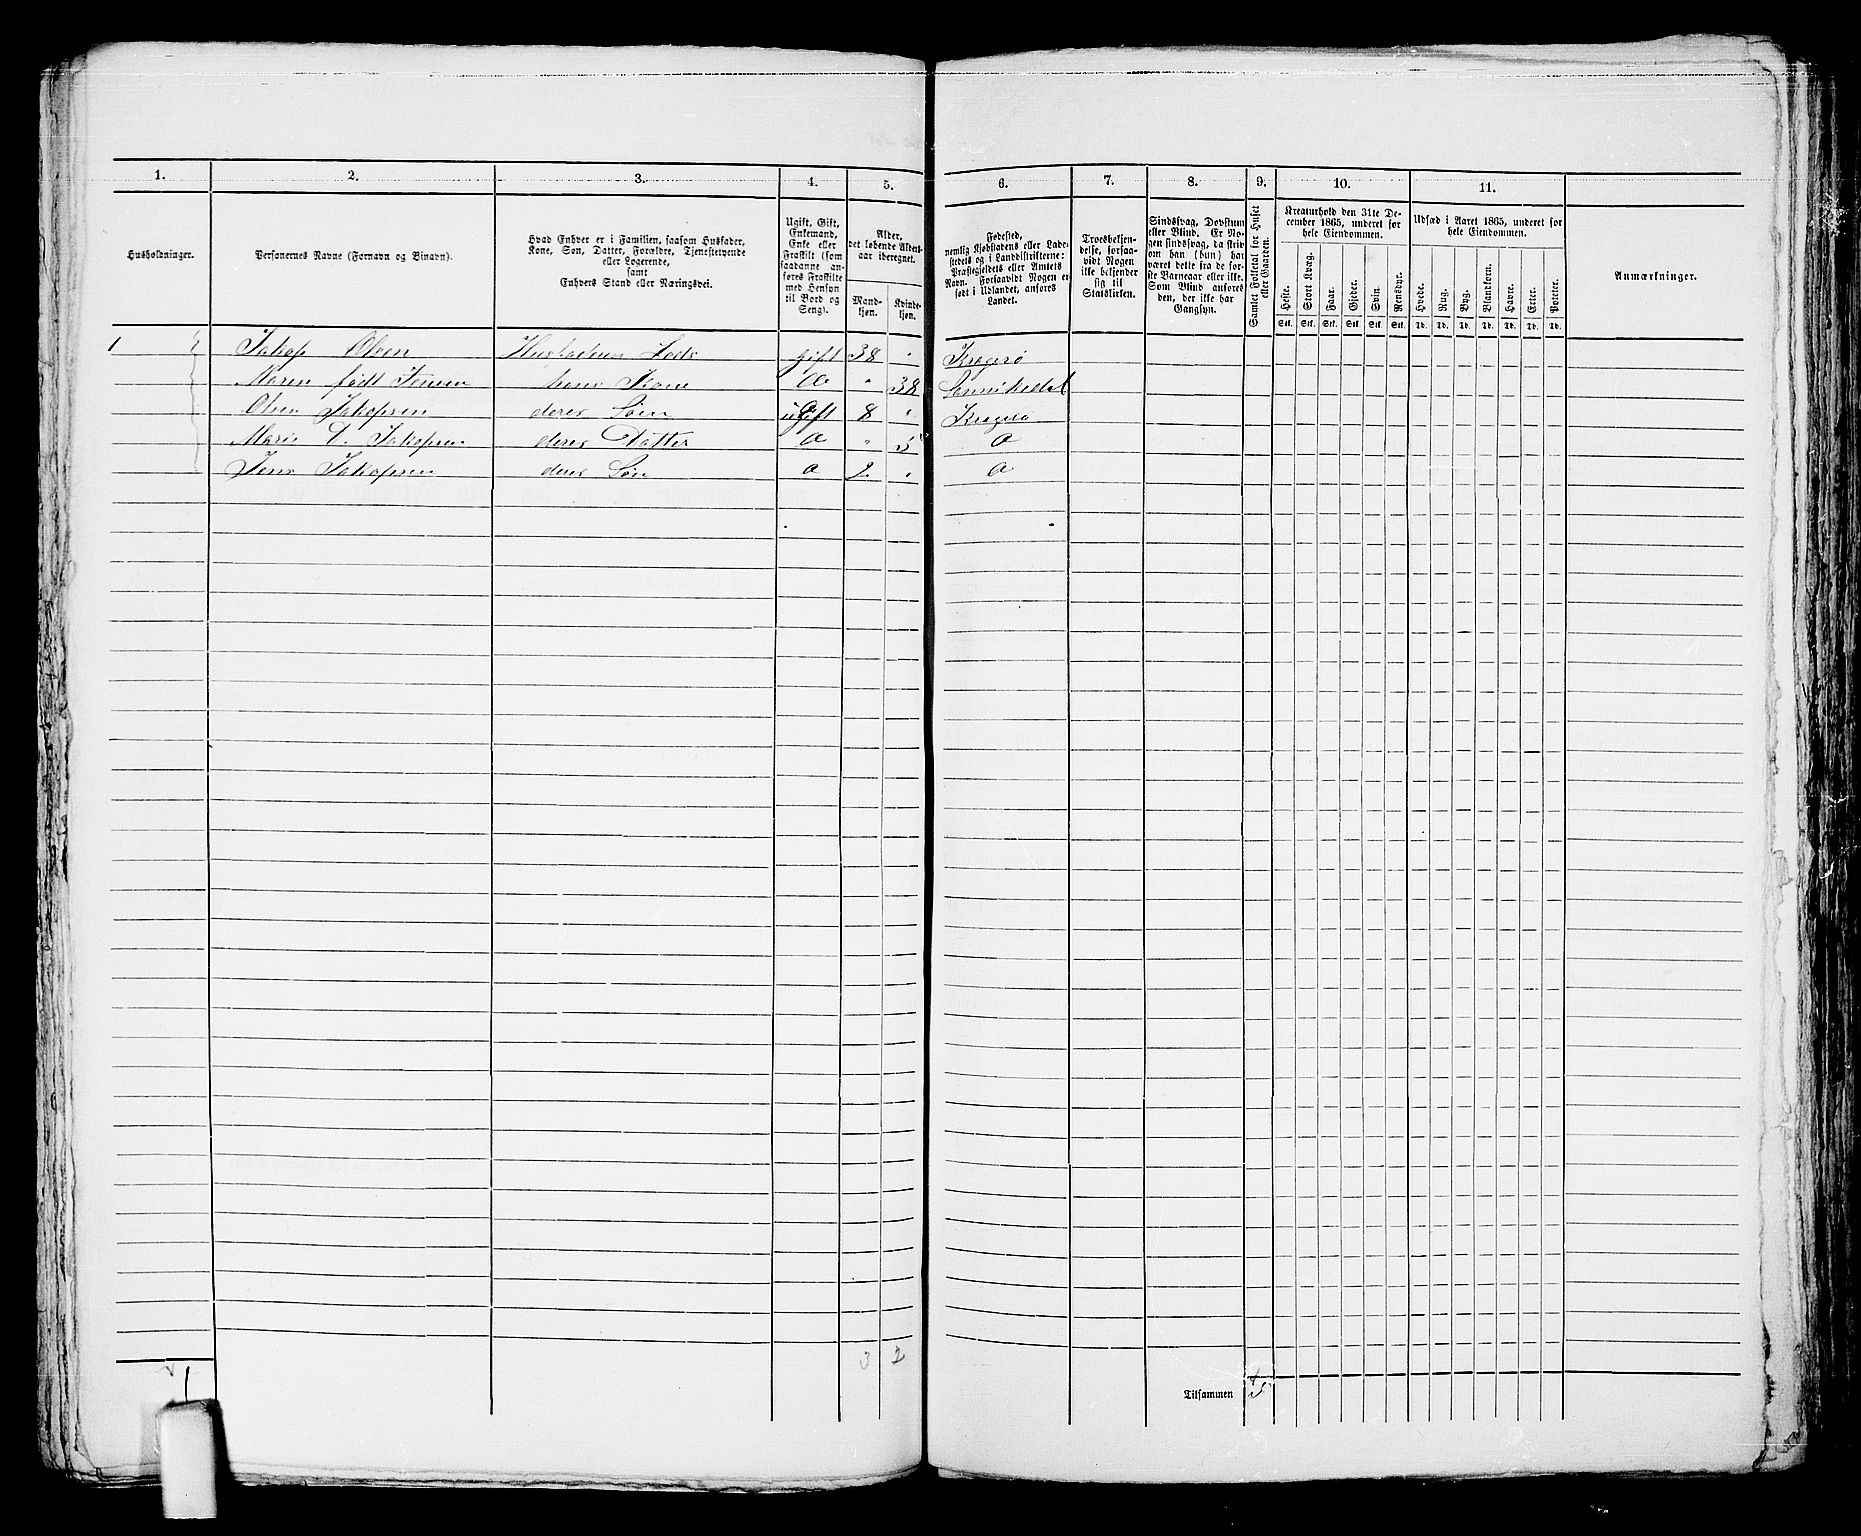 1. 2. 3. 4. 5. 6. 7. 8. 9. 10. 11.
Husholdninger.
Personernes Navne (Fornavn og Binavn).
Hvad Enhver er i Familien, saasom Husfader,
Kone, Søn, Datter, Forældre, Tjenestetyende
eller Logerende,
samt
Enhvers Stand eller Næringsvei.
Ugift, Gift,
Enkemand,
Enke eller
Fraskilt (som
saadanne an-
føres Fraskilte
med Hensyn
til Bord og
Seng).
Alder,
det løbende Alders-
aar iberegnet.
Mand-
kjøn.
Kvinde-
kjøn.
Fødested,
nemlig Kjøbstadens eller Lade-
stedets og i Landdistrikterne:
Præstegjeldets eller Amtets
Navn. Forsaavidt Nogen er
født i Udlandet, anføres
Landet.
Troesbekjen-
delse, forsaa-
vidt Nogen
ikke bekjender
sig til
Statskirken.
Sindssvag, Døvstum
eller Blind. Er No-
gen sindssvag, da skriv
om han (hun) har
været dette fra de før-
ste Barneaar eller ikke.
Som Blind anføres
den, der ikke har
Gangsyn.
Samlet Folketal for Huset
eller Gaarden.
Kreaturhold den 31te De-
cember 1865, underet for
hele Eiendommen.
Heste. Stort Kvæg. Faar. Gjeder. Svin. Rensdyr.
Stk. Stk. Stk. Stk. Stk. Stk.
Udsæd i Aaret 1865, underet for
hele Eiendommen.
Hvede. Rug. Byg. Blandkorn. Havre. Erter. Poteter.
Td. Td. Td. Td. Td. Td. Td.
Anmærkninger.
1 Jakop Olsen Husfaderen Lods gift 38 " Kragerø
Maren født Jensen hans Kone " 38 Sannikedal
Olsen Jakopsen deres Søn ugift 8 " Kragerø
Marie Jakopsen deres Datter " 5
Jens Jakopsen deres Søn 2 "
3 2
1
Tilsammen 5